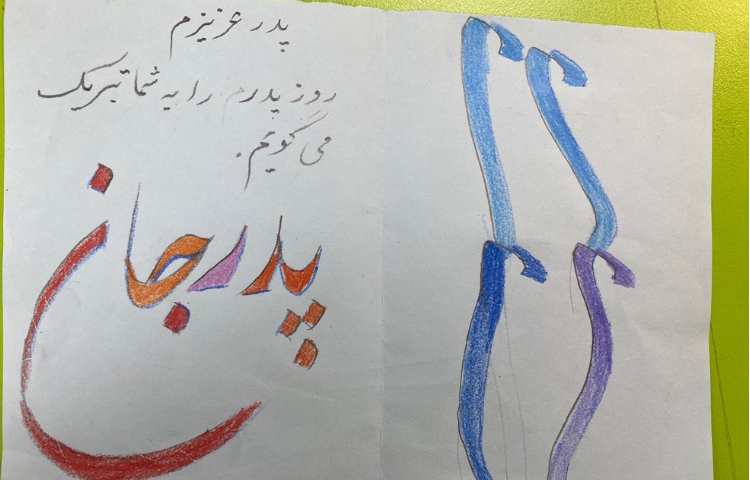 پدر عزیزم
روز پدرم را به شما تبریک
می گویم.
پدر جان